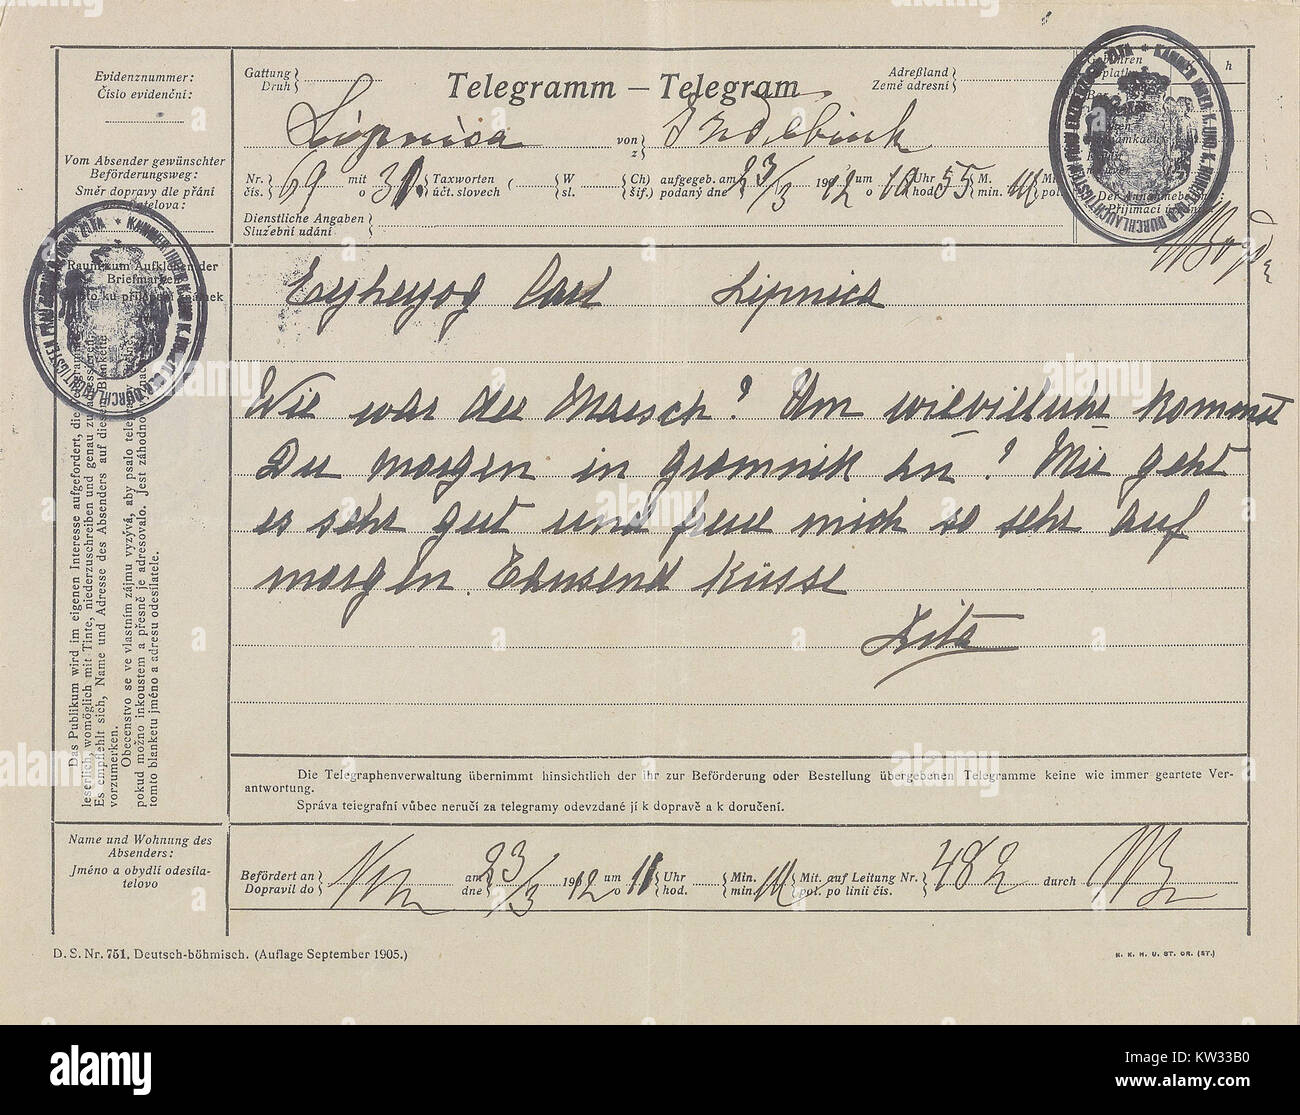 Evidenznummer:
Číslo evidenční:
Vom Absender gewünschter
Beförderungsweg:
Směr dopravy dle přání
Gattung
Druh
Telegramm — Telegram
Adreßland
Země adresní
h
Lipnica von
z
Nr.
čís. 69 mit
o 31. Taxworten
účt. slovech ( W
sl. Ch)
šif.) aufgegeben am
podaný dne 23/3 1912 um
o 10 Uhr
hod. 55 M.
min.
Dienstliche Angaben
Služební udání
Der Annahmebeamte:
Raum zum Aufkleben der
Briefmarken
Erzherzog Carl Lipnica
Wie war der Marsch? Um wievieluhr kommst
Du morgen in Gromnik an? Mir geht
es sehr gut und freue mich so sehr auf
morgen. Thausend Küsse
Zita
Das Publikum wird im eigenen Interesse aufgefordert, die
leserlich, womöglich mit Tinte, niederzuschreiben und genau zu adressieren.
Es empfiehlt sich, Name und Adresse des Absenders auf diesem Blankette
vorzumerken.
Obecenstvo se ve vlastním zájmu vyzývá, aby psalo
pokud možno inkoustem a přesně je adresovalo. Jest záhodno,
tomto blanketu jméno a adresu odesilatele.
Die Telegraphenverwaltung übernimmt hinsichtlich der ihr zur Beförderung oder Bestellung übergebenen Telegramme keine wie immer geartete Ver-
antwortung.
Správa telegrafní vůbec neručí za telegramy odevzdané jí k dopravě a k doručení.
Name und Wohnung des
Absenders:
Jméno a obydlí odesíla-
telovo
Befördert an
Dopravil do am
dne 23/3 1912 um
o 11 Uhr
hod. Min.
min. Mit. auf Leitung Nr.
pot. po linii čís. 482 durch
D. S. Nr. 751. Deutsch-böhmisch. (Auflage September 1905.)
K. K. H. U. ST. DR. (ST.)
alamy
alamy
Image ID: KW33B0
www.alamy.com